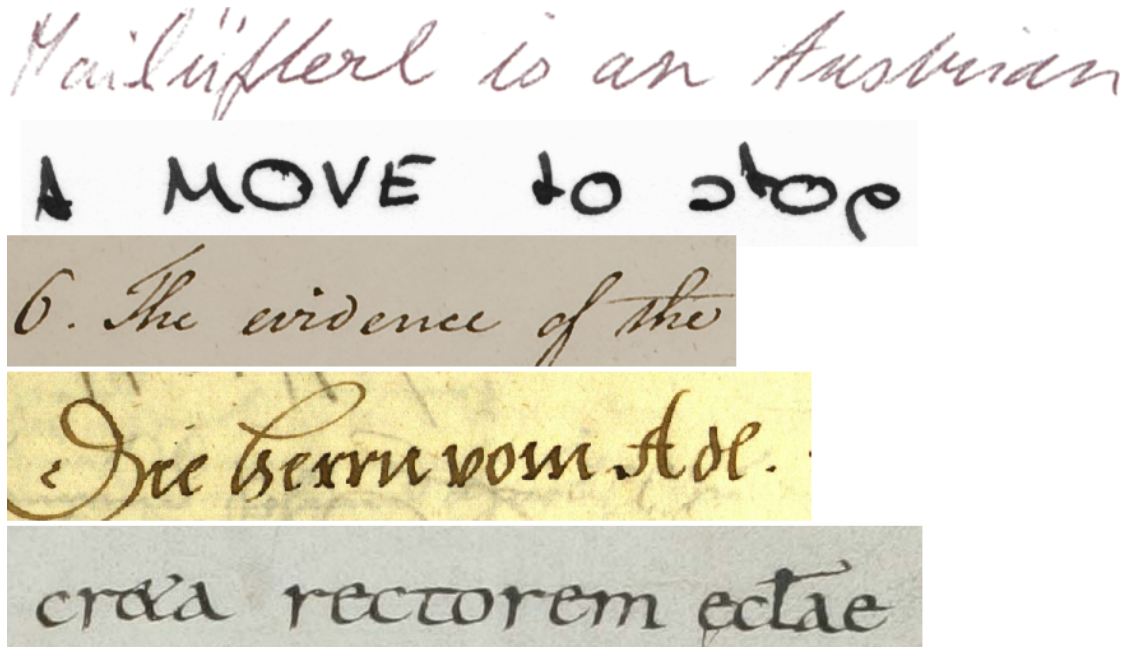 Mailüfterl is an Austrian
A MOVE to stop
6. The evidence of the
Die herrn vom Adl.
rectorem eclae